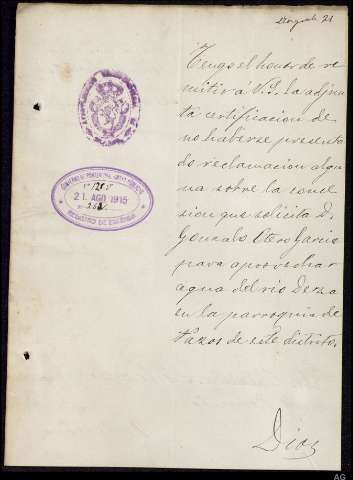 21
Tengo el honor de re
mitir a V.S. la adjun
ta certificacion de
no haberse presenta
do reclamacion algu
na sobre la conce
sion que solicita D.
Gonzalo Otero Garcia
para aprovechar
agua del rio Deza
en la parroquia de
Pazos de este distrito.
Dios
21 AGO 1915
REGISTRO DE ENTRADA
AG